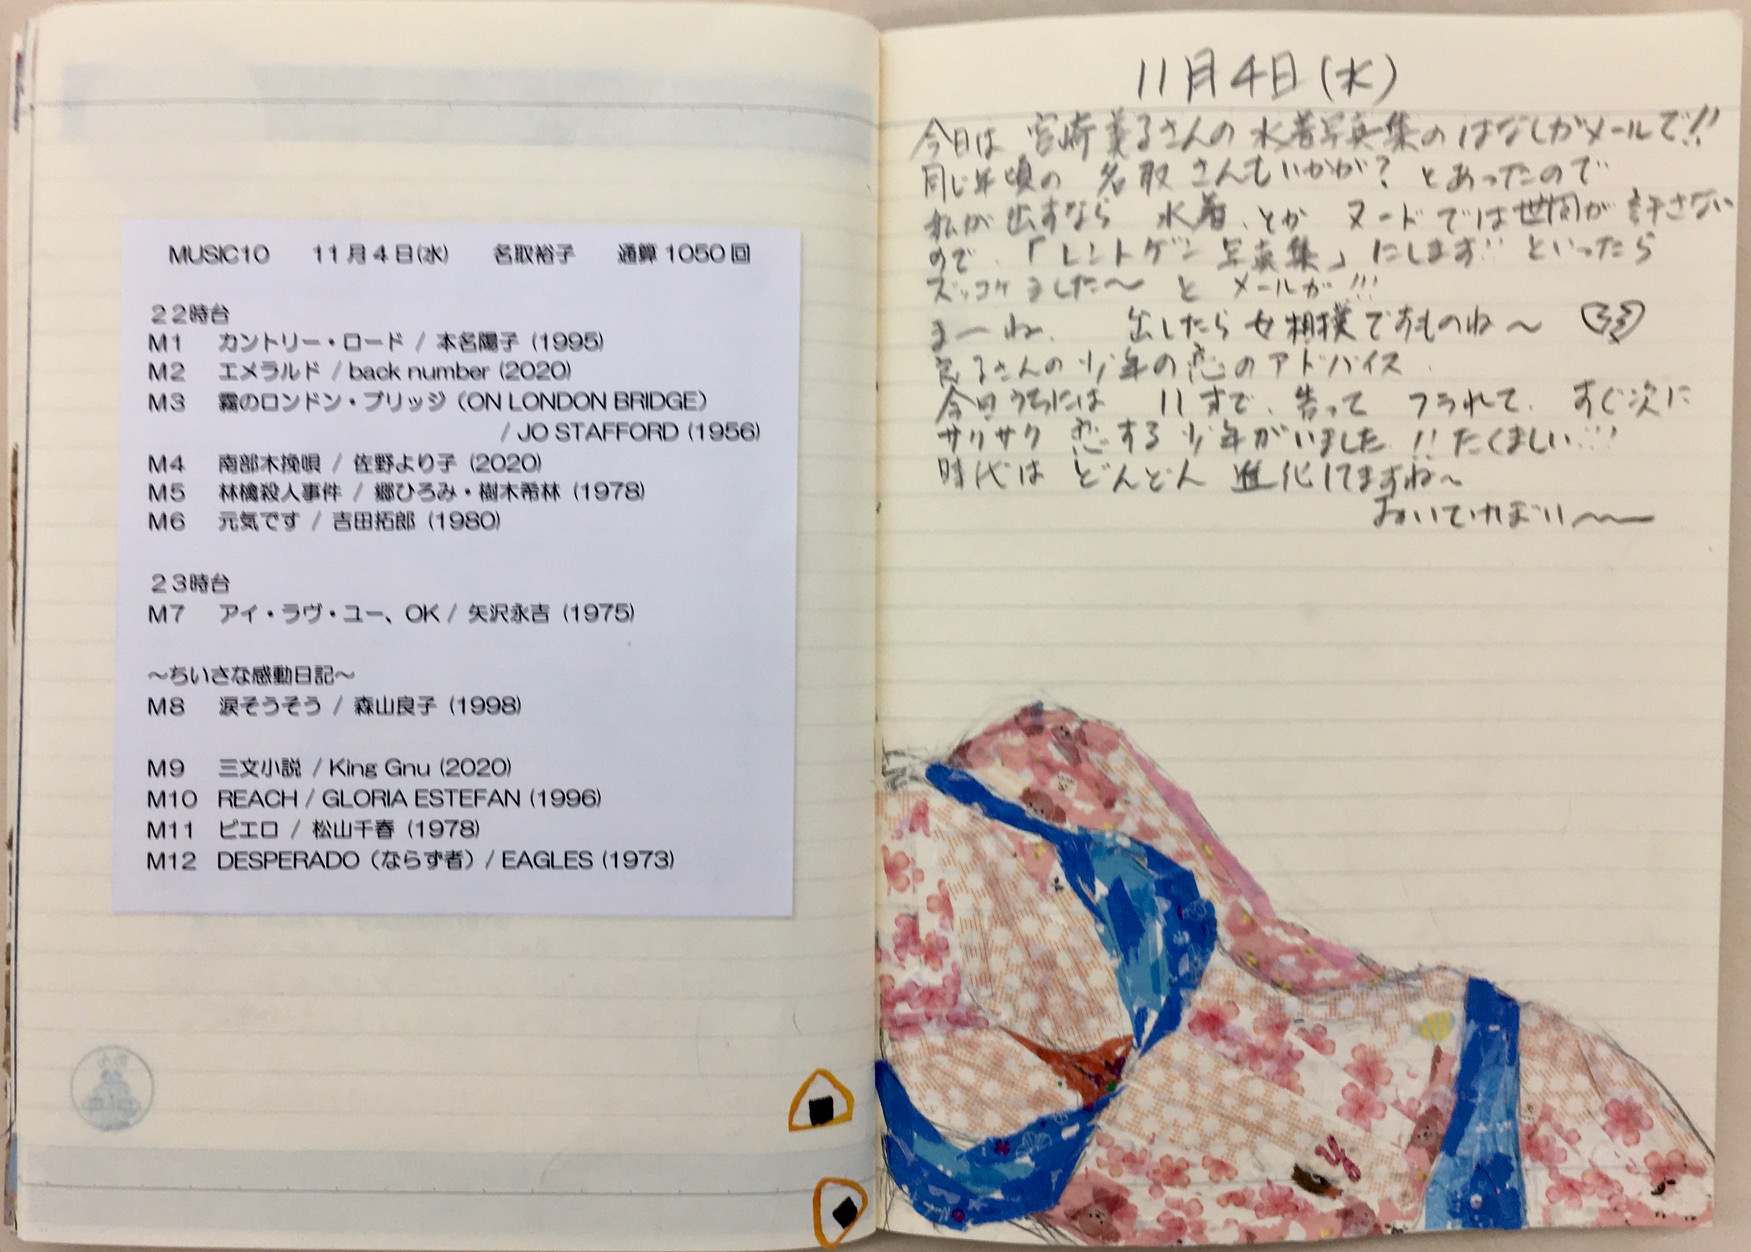 MUSIC10 11月4日(水) 名取裕子 通算1050回
22時台
M1 カントリー・ロード / 本名陽子 (1995)
M2 エメラルド / back number (2020)
M3 霧のロンドン・ブリッジ（ON LONDON BRIDGE）
/ JO STAFFORD (1956)
M4 南部木挽唄 / 佐野より子 (2020)
M5 林檎殺人事件 / 郷ひろみ・樹木希林 (1978)
M6 元気です / 吉田拓郎 (1980)
23時台
M7 アイ・ラヴ・ユー、OK / 矢沢永吉 (1975)
～ちいさな感動日記～
M8 涙そうそう / 森山良子 (1998)
M9 三文小説 / King Gnu (2020)
M10 REACH / GLORIA ESTEFAN (1996)
M11 ピエロ / 松山千春 (1978)
M12 DESPERADO（ならず者）/ EAGLES (1973)
11月4日(水)
今日は 宮崎美子さんの 水着写真集の はなしがメールで!!
同じ年頃の 名取さんもいかが? とあったので
私が出すなら 水着、とか ヌードでは世間が許さない
ので、「レントゲン写真集」にします!! といったら
ズッコケました〜 と メールが!!!
まーね、 出したら女相撲ですものね〜
良子さんの少年の恋のアドバイス
今日うちには 11才で、告って フラれて、すぐ次に
サクサク 恋する少年がいました!! たくましい!!!
時代は どんどん 進化してますね〜
おいてけぼり〜